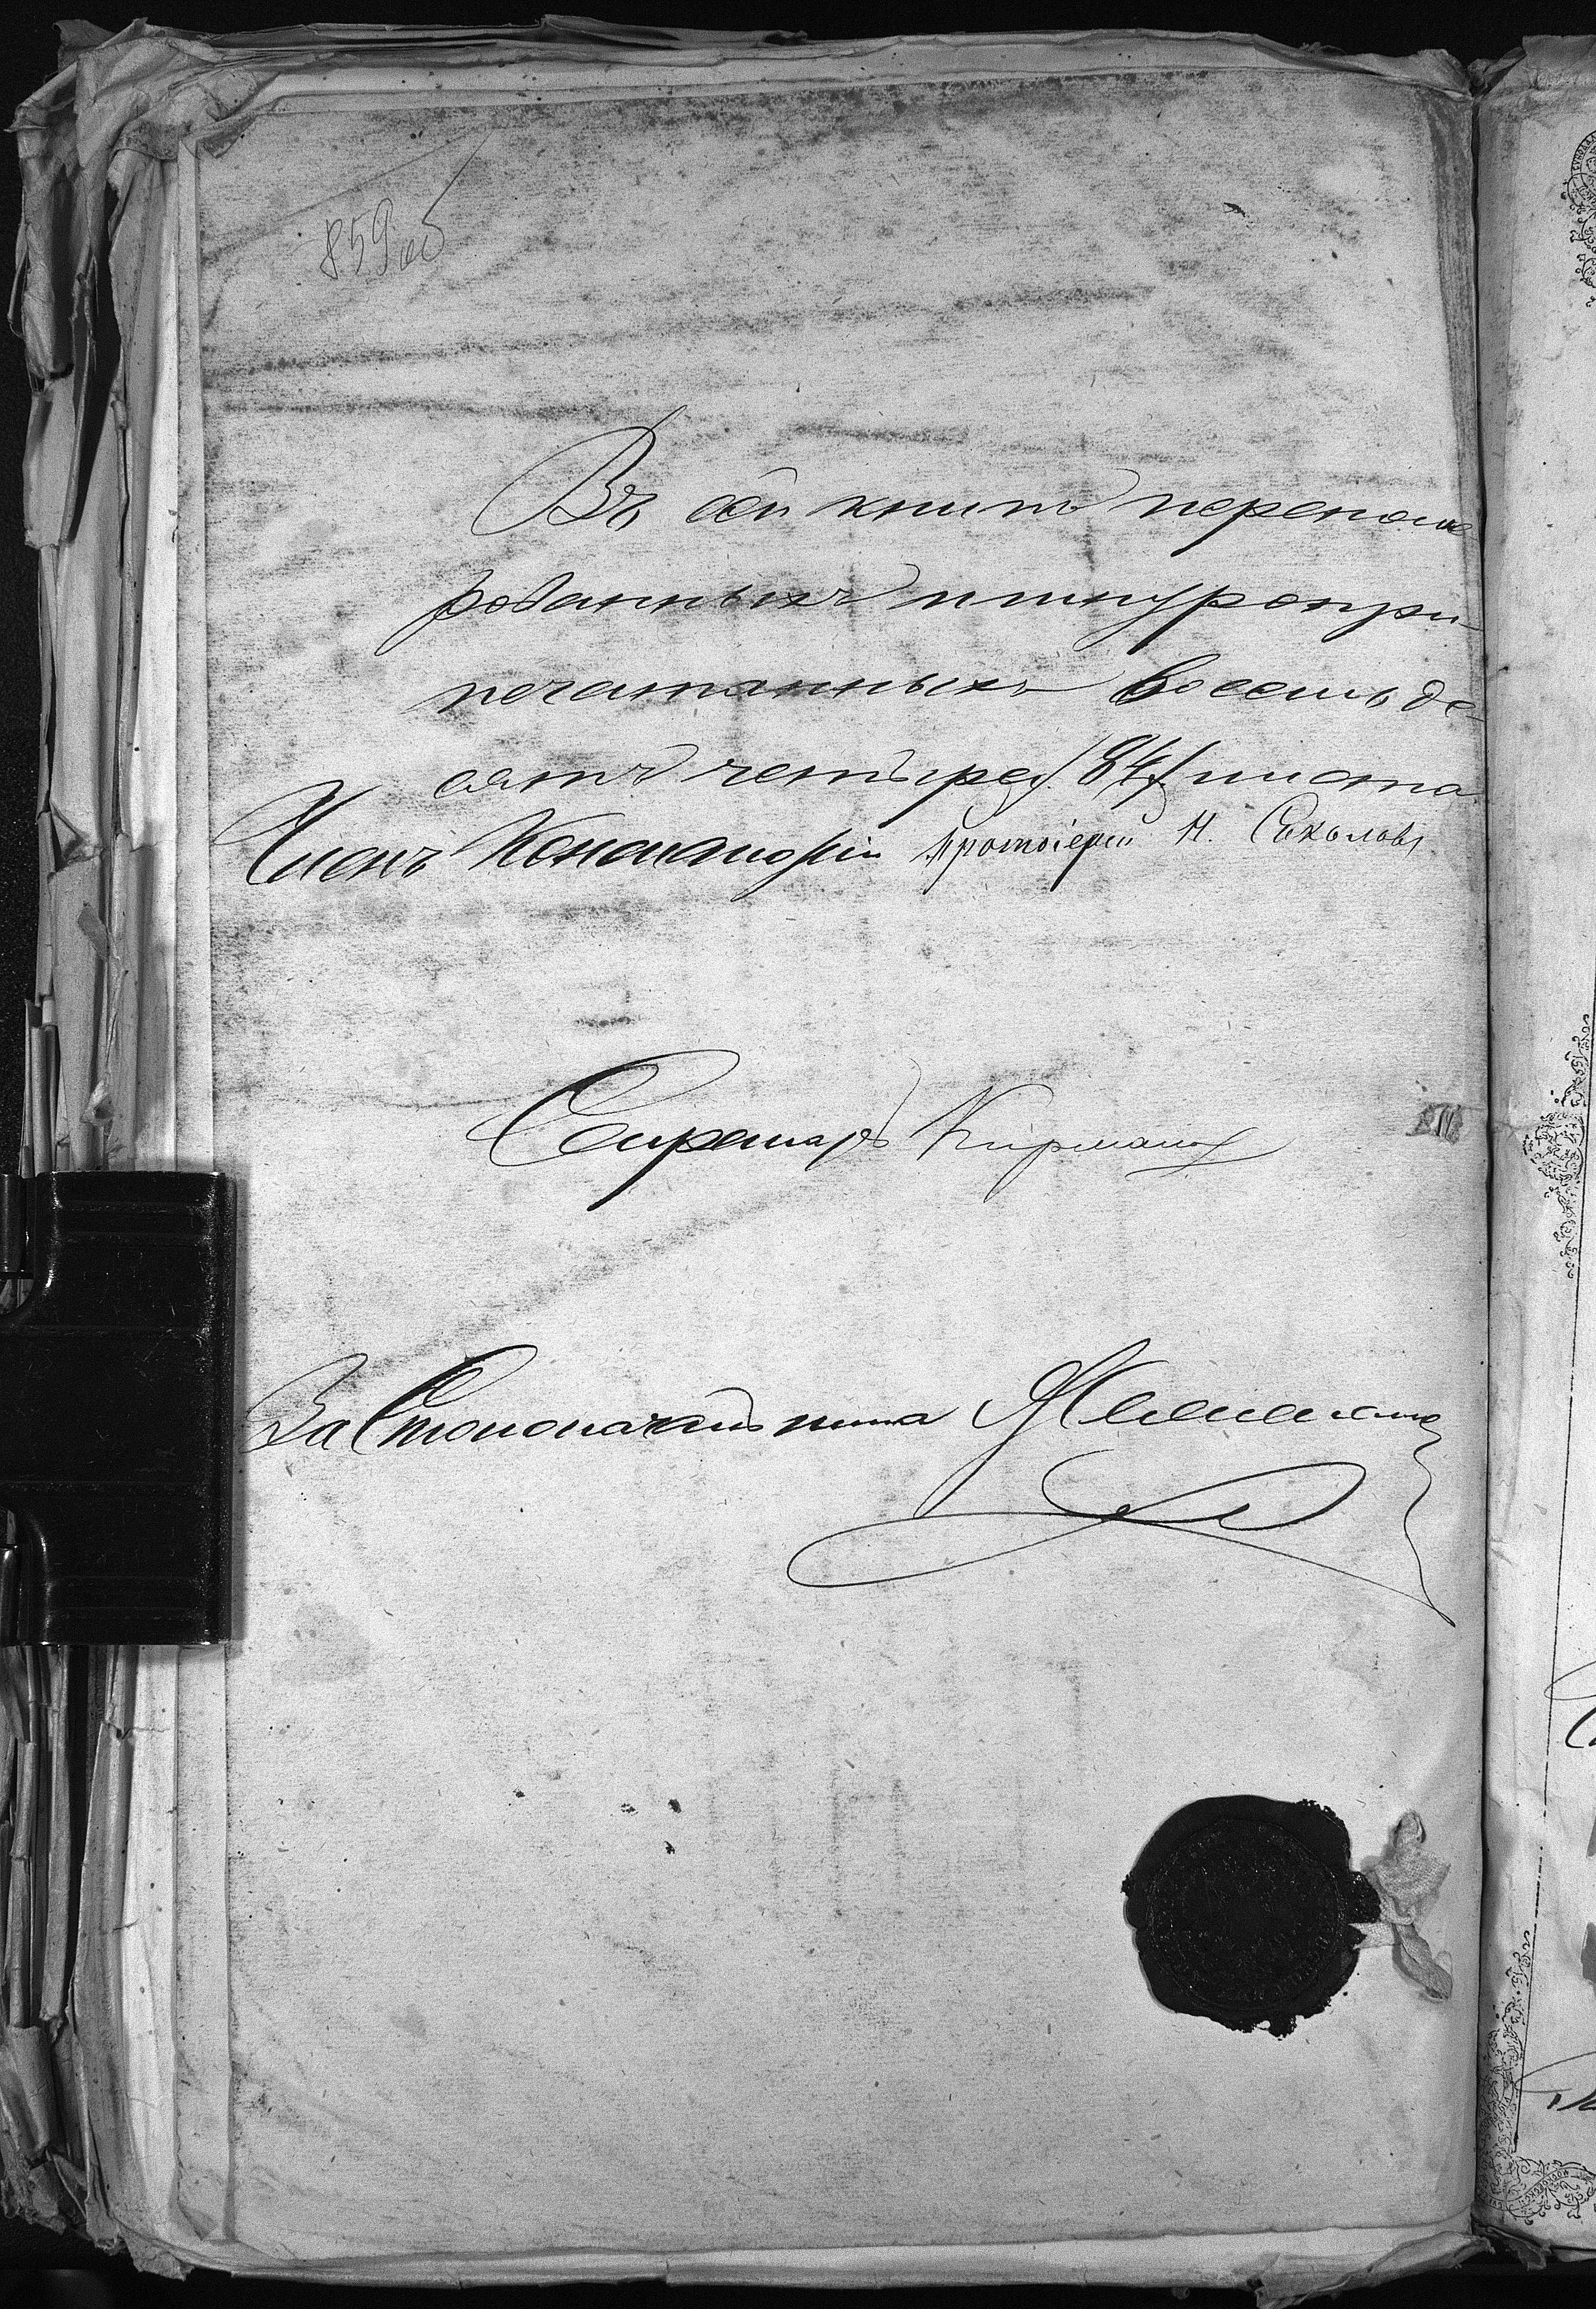 859 об
Въ сей книгѣ перенуме-
рованныхъ и шнуропри-
печатанныхъ восемьде-
сятъ четыре /84/ листа.
Членъ Консисторіи Протоіерей Н. Соколовъ
Секретарь
За Столоначальника